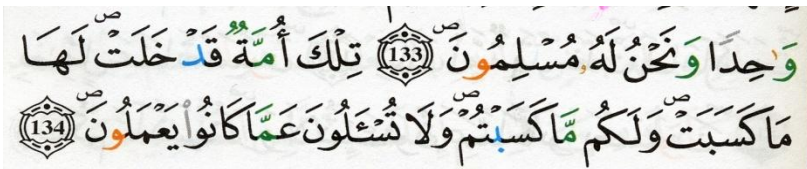 وَٰحِدًا وَنَحْنُ لَهُۥ مُسْلِمُونَ ۖ (133) تِلْكَ أُمَّةٌ قَدْ خَلَتْ ۖ لَهَا
مَا كَسَبَتْ ۖ وَلَكُم مَّا كَسَبْتُمْ ۖ وَلَا تُسْـَٔلُونَ عَمَّا كَانُوا۟ يَعْمَلُونَ ۖ (134)